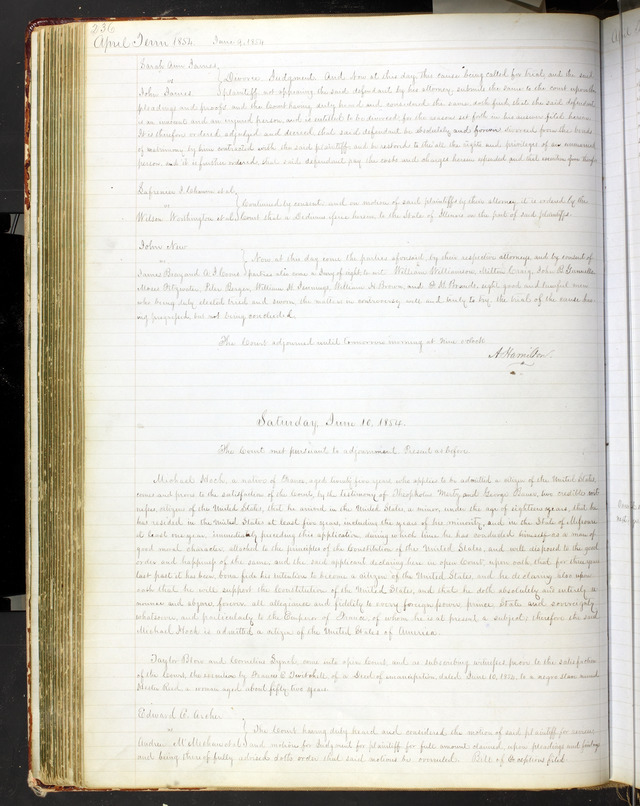 236
April Term 1854 June 9, 1854
Sarah Ann James,
vs } Divorce. Judgment. And now at this day this cause being called for trial, and the said
John James plaintiff not appearing the said defendant by his attorney, submits the cause to the court upon the
pleadings and proofs and the Court having duly heard and considered the same doth find that the said defendant
is an innocent and an injured person, and is entitled to be divorced for the reasons set forth in his answer filed herein.
It is therefore ordered adjudged and decreed that said defendant be absolutely and forever divorced from the bonds
of matrimony by him contracted with the said plaintiff and be restored to all the rights and privileges of an unmarried
person, and it is further ordered that said defendant pay the costs and charges herein expended and that execution issue therefor
vs } Continued by consent and on motion of said plaintiffs by their attorney it is ordered by the
Wilson Worthington et al Court that a Dedimus issue herein to the State of Illinois on the part of said plaintiffs.
John New
vs } Now at this day come the parties aforesaid, by their respective attorneys and by consent of
James Bray and A. J. Coons parties also come a Jury of eight to wit William Williamson, Milton Craig, John B.
Moses Fitzwater, Peter Bergen, William H. Jennings, William H. Brown, and H. H. good and lawful men
who being duly elected tried and sworn the matters in controversy well and truly to try, the trial of the cause hav-
ing progressed, but not being concluded.
The Court adjourned until tomorrow morning at nine o'clock
A. Hamilton.
Saturday, June 10, 1854.
The Court met pursuant to adjournment Present as before.
Michael Hock, a native of France, aged twenty four years, who applies to be admitted a citizen of the United States,
comes and proves to the satisfaction of the Court, by the testimony of Theopholus and George two credible wit-
nesses, citizens of the United States, that he arrived in the United States a minor, under the age of eighteen years, that he
has resided in the United States at least five years, including the years of his minority, and in the State of Missouri
at least one year, immediately preceding this application, during which time he has conducted himself as a man of
good moral character, attached to the principles of the Constitution of the United States, and well disposed to the good
order and happiness of the same, and the said applicant declaring here in open Court, upon oath, that for three years
last past it has been bona fide his intention to become a citizen of the United States, and he declaring also upon
oath that he will support the Constitution of the United States, and that he doth absolutely and entirely re-
nounce and abjure forever all allegiance and fidelity to every foreign power prince State and sovereignty
whatsoever, and particularly to the Emperor of France, of whom he is at present a subject; therefore the said
Michael Hock is admitted a citizen of the United States of America.
Taylor Blow and Cornelius Lynch, come into open Court and as subscribing witnesses prove to the satisfaction
of the Court the execution by Francis E. of a Deed of emancipation, dated June 10, 1854, to a negro slave named
a woman aged about fifty two years.
Edward E. Archer
vs } The Court having duly heard and considered the motion of said plaintiff for
Andrew McMechan et al and motions for Judgment for plaintiff for full amount claimed, upon pleadings and
and being thereof fully advised doth order that said motions be overruled. Bill of Exceptions filed.